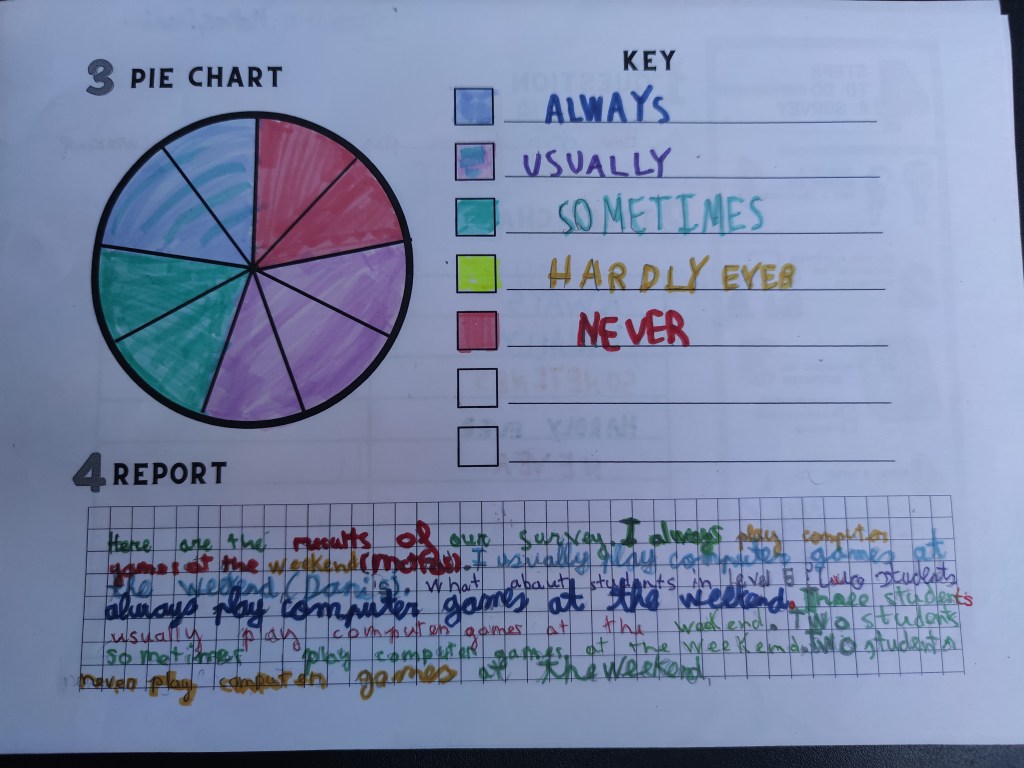 3 PIE CHART
KEY
ALWAYS
USUALLY
SOMETIMES
HARDLY EVER
NEVER
4 REPORT
Here are the results of our survey. I always play computer
games at the weekend I usually play computer games at
the weekend (Danijs). What about students in level 5? Two students
always play computer games at the weekend. Three students
usually play computer games at the weekend. Two students
sometimes play computer games at the weekend. Two students
never play computer games at the weekend.